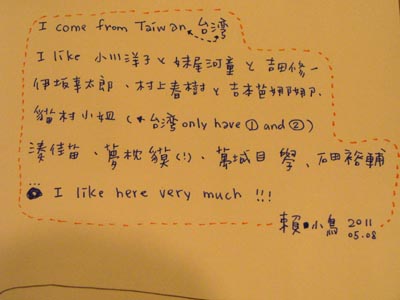 I come from Taiwan 台湾
I like 小川洋子と妹尾河童と吉田修一
伊坂幸太郎、村上春樹と吉本芭娜娜、
貓村小姐 (* 台湾 only have ① and ②)
湊佳苗、夢枕貘(!)、萬城目 學、石田裕輔
... I like here very much !!!
賴 小鳥 2011
05.08